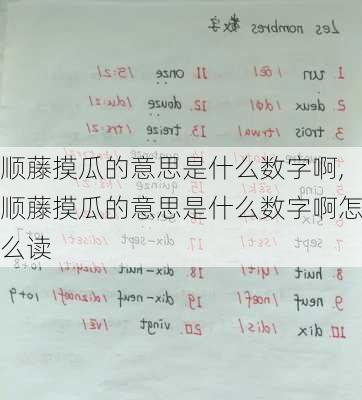 Les nombres 数字
1. un /œ̃/ 11. onze /ɔ̃:z/
2. deux /dø/ 12. douze /du:z/
3. trois /trwa/ 13. treize /trɛ:z/
顺藤摸瓜的意思是什么数字啊,
顺藤摸瓜的意思是什么数字啊怎
么读
cinq quinze
sept /sɛt/ dix-sept
8. huit /ɥit/ 18. dix-huit /dizɥit/ 10+8
9. neuf /nœf/ 19. dix-neuf /diznœf/ 10+9
10. dix /dis/ 20. vingt /vɛ̃/